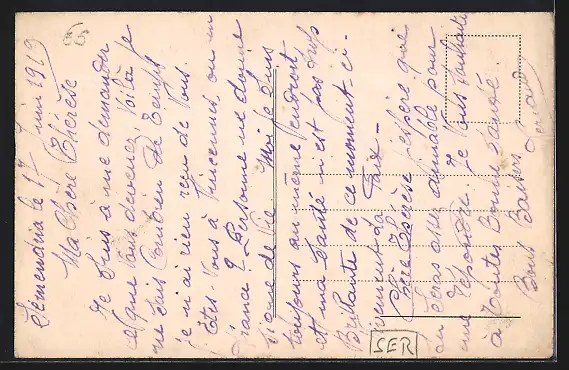 Semendria le 17 Juin 1919
Ma Chère Thérèse
Je suis a me demander
ce que vous devenez, voilà je
ne sais combien de temps
je n'ai rien reçu de vous.
Êtes-vous à Vincennes, ou en
? Personne ne donne
signe de vie. Moi je suis
toujours au même endroit
et ma santé n'est pas plus
Brillante de ce moment-ci.
Chère Thérèse j'espère que
tu seras assez aimable pour
me répondre. Je vous souhaite
à toutes bonne santé.
Bons Baisers
SER